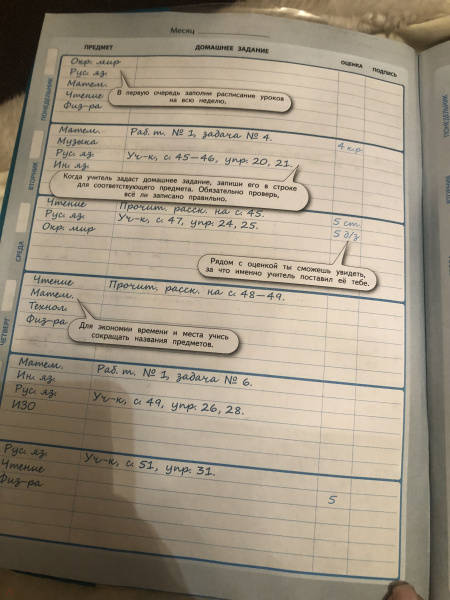 Месяц
ПРЕДМЕТ ДОМАШНЕЕ ЗАДАНИЕ ОЦЕНКА ПОДПИСЬ
ПОНЕДЕЛЬНИК
Окр. мир
Рус. яз.
Матем.
Чтение
Физ-ра
В первую очередь заполни расписание уроков
на всю неделю.
ВТОРНИК
Матем. Раб. т. № 1, задача № 4. 4 к.р
Музыка
Рус. яз. Уч-к, с. 45-46, упр. 20, 21.
Ин. яз.
Когда учитель задаст домашнее задание, запиши его в строке
для соответствующего предмета. Обязательно проверь,
всё ли записано правильно.
СРЕДА
Чтение Прочит. расск. на с. 45. 5 ст.
Рус. яз. Уч-к, с. 47, упр. 24, 25. 5 д/з
Окр. мир
Рядом с оценкой ты сможешь увидеть,
за что именно учитель поставил её тебе.
ЧЕТВЕРГ
Чтение Прочит. расск. на с. 48-49.
Матем.
Технол.
Физ-ра
Для экономии времени и места учись
сокращать названия предметов.
Матем. Раб. т. № 1, задача № 6.
Ин. яз.
Рус. яз. Уч-к, с. 49, упр. 26, 28.
ИЗО
Рус. яз. Уч-к, с. 51, упр. 31.
Чтение
Физ-ра 5
ПОНЕДЕЛЬНИК